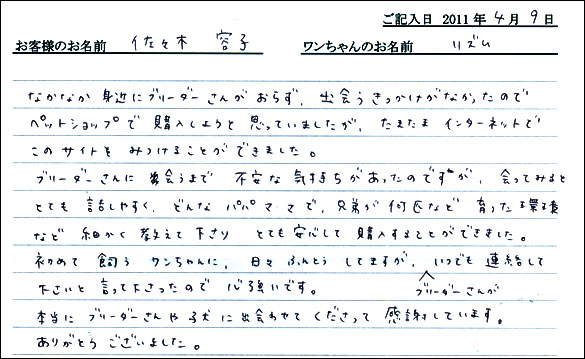 ご記入日 2011年4月9日
お客様のお名前 佐々木 容子 ワンちゃんのお名前 リズム
なかなか身近にブリーダーさんがおらず、出会うきっかけがなかったので
ペットショップで購入しようと思っていましたが、たまたまインターネットで
このサイトをみつけることができました。
ブリーダーさんに出会うまで不安な気持ちがあったのですが、会ってみると
とても話しやすく、どんなパパママで、兄弟が何匹など育った環境
など細かく教えて下さり とても安心して購入することができました。
初めて飼うワンちゃんに、日々ふんとうしてますが、いつでも連絡して
下さいと言って下さったので心強いです。 ブリーダーさんが
本当にブリーダーさんや子犬に出会わせてくださって感謝しています。
ありがとうございました。